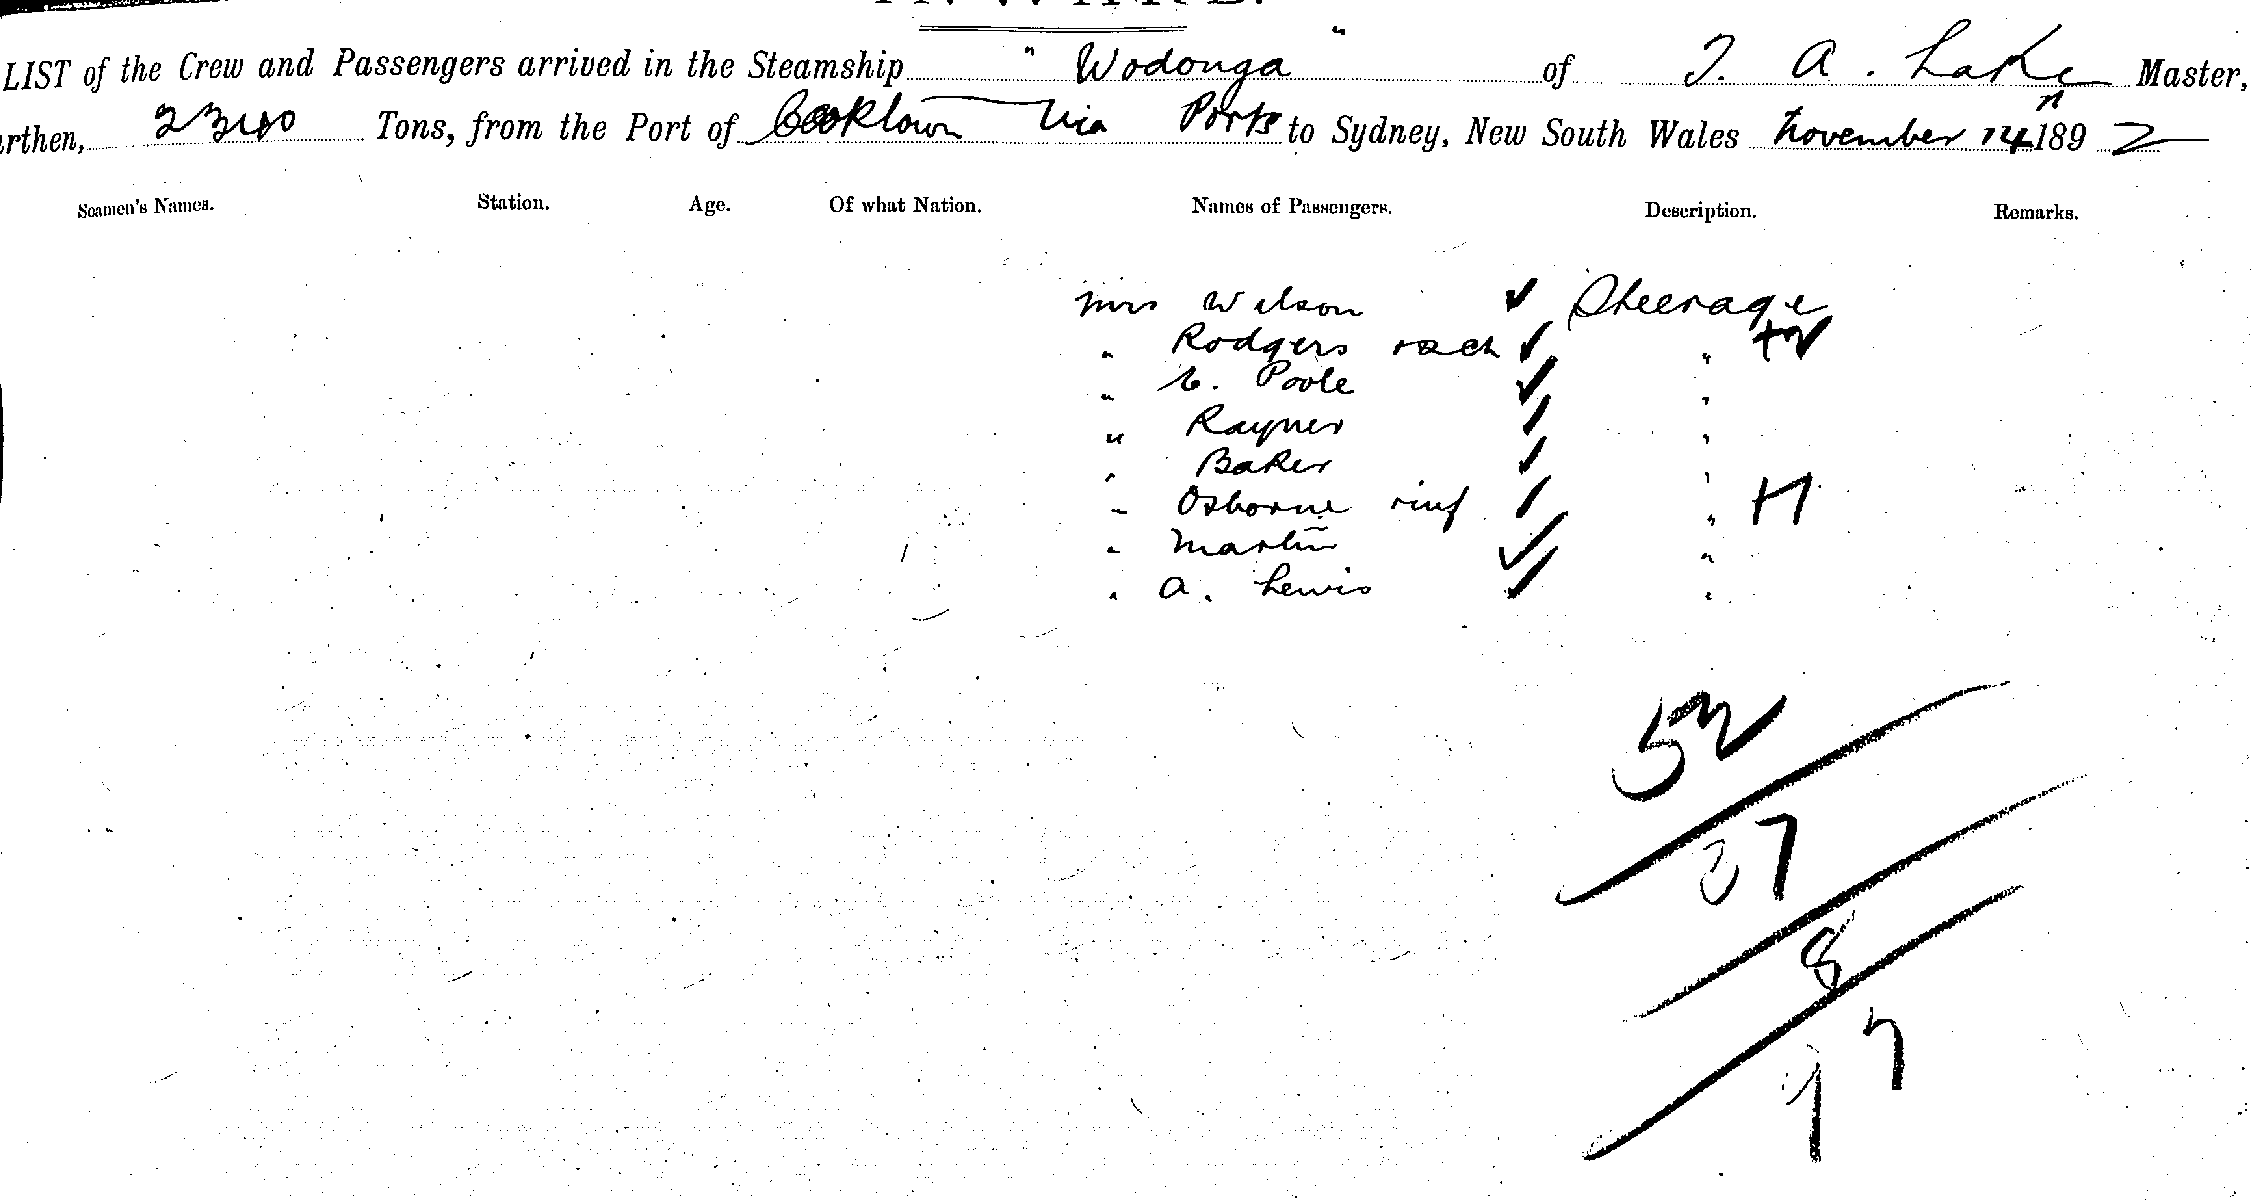 LIST of the Crew and Passengers arrived in the Steamship " Wodonga " of T. A. Lake Master,
rthen, 2340 Tons, from the Port of Cooktown via Ports to Sydney, New South Wales November 14th 1892
Seamen's Names. Station. Age. Of what Nation. Names of Passengers. Description. Remarks.
Mrs Wilson ✓ Steerage
" Rodgers & ch ✓ " +2
" C. Poole ✓ "
" Rayner ✓ "
" Baker ✓ "
" Osborne & inf ✓ " +1
" Martin ✓ "
" A. Lewis ✓ "
52
37
8
7